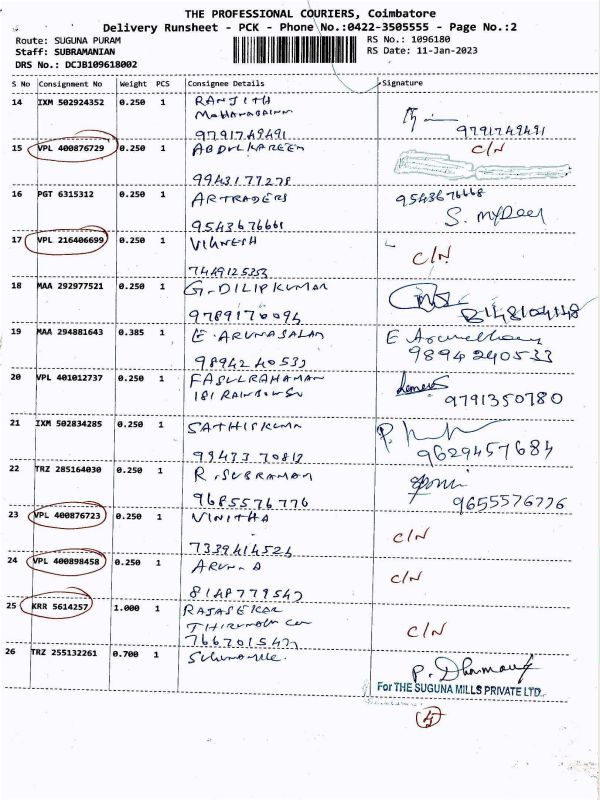 THE PROFESSIONAL COURIERS, Coimbatore
Delivery Runsheet - PCK - Phone No.:0422-3505555 - Page No.:2
Route: SUGUNA PURAM RS No.: 1096180
Staff: SUBRAMANIAN RS Date: 11-Jan-2023
DRS No.: DCJB109618002
S No Consignment No Weight PCS Consignee Details Signature
14 IXM 502924352 0.250 1 RANJITH
9791749491 9791749491
15 VPL 400876729 0.250 1 ABDULKAREEM C/N
9943177278
16 PGT 6315312 0.250 1 ARTRADERS 9543676668
9543676661 S. mydeel
17 VPL 216406699 0.250 1 VIGNESH C/N
7449125253
18 MAA 292977521 0.250 1 G. DILIPKUMAR
9789170094 8148104148
19 MAA 294881643 0.385 1 E. ARUNASALAM E
9894240533 9894240533
20 VPL 401012737 0.250 1 FASULRAHAMAN
181 9791350780
21 IXM 502834285 0.250 1 SATHISKUMA P.
9943370812 9629457684
22 TRZ 285164030 0.250 1 R. SUBRAMANI
9685576776 9655576776
23 VPL 400876723 0.250 1 VINITHA C/N
7339414524
24 VPL 400898458 0.250 1 ARUN. A C/N
8148779547
25 KRR 5614257 1.000 1 RAJASEKAR
C/N
7667015477
26 TRZ 255132261 0.700 1
P.
For THE SUGUNA MILLS PRIVATE LTD.